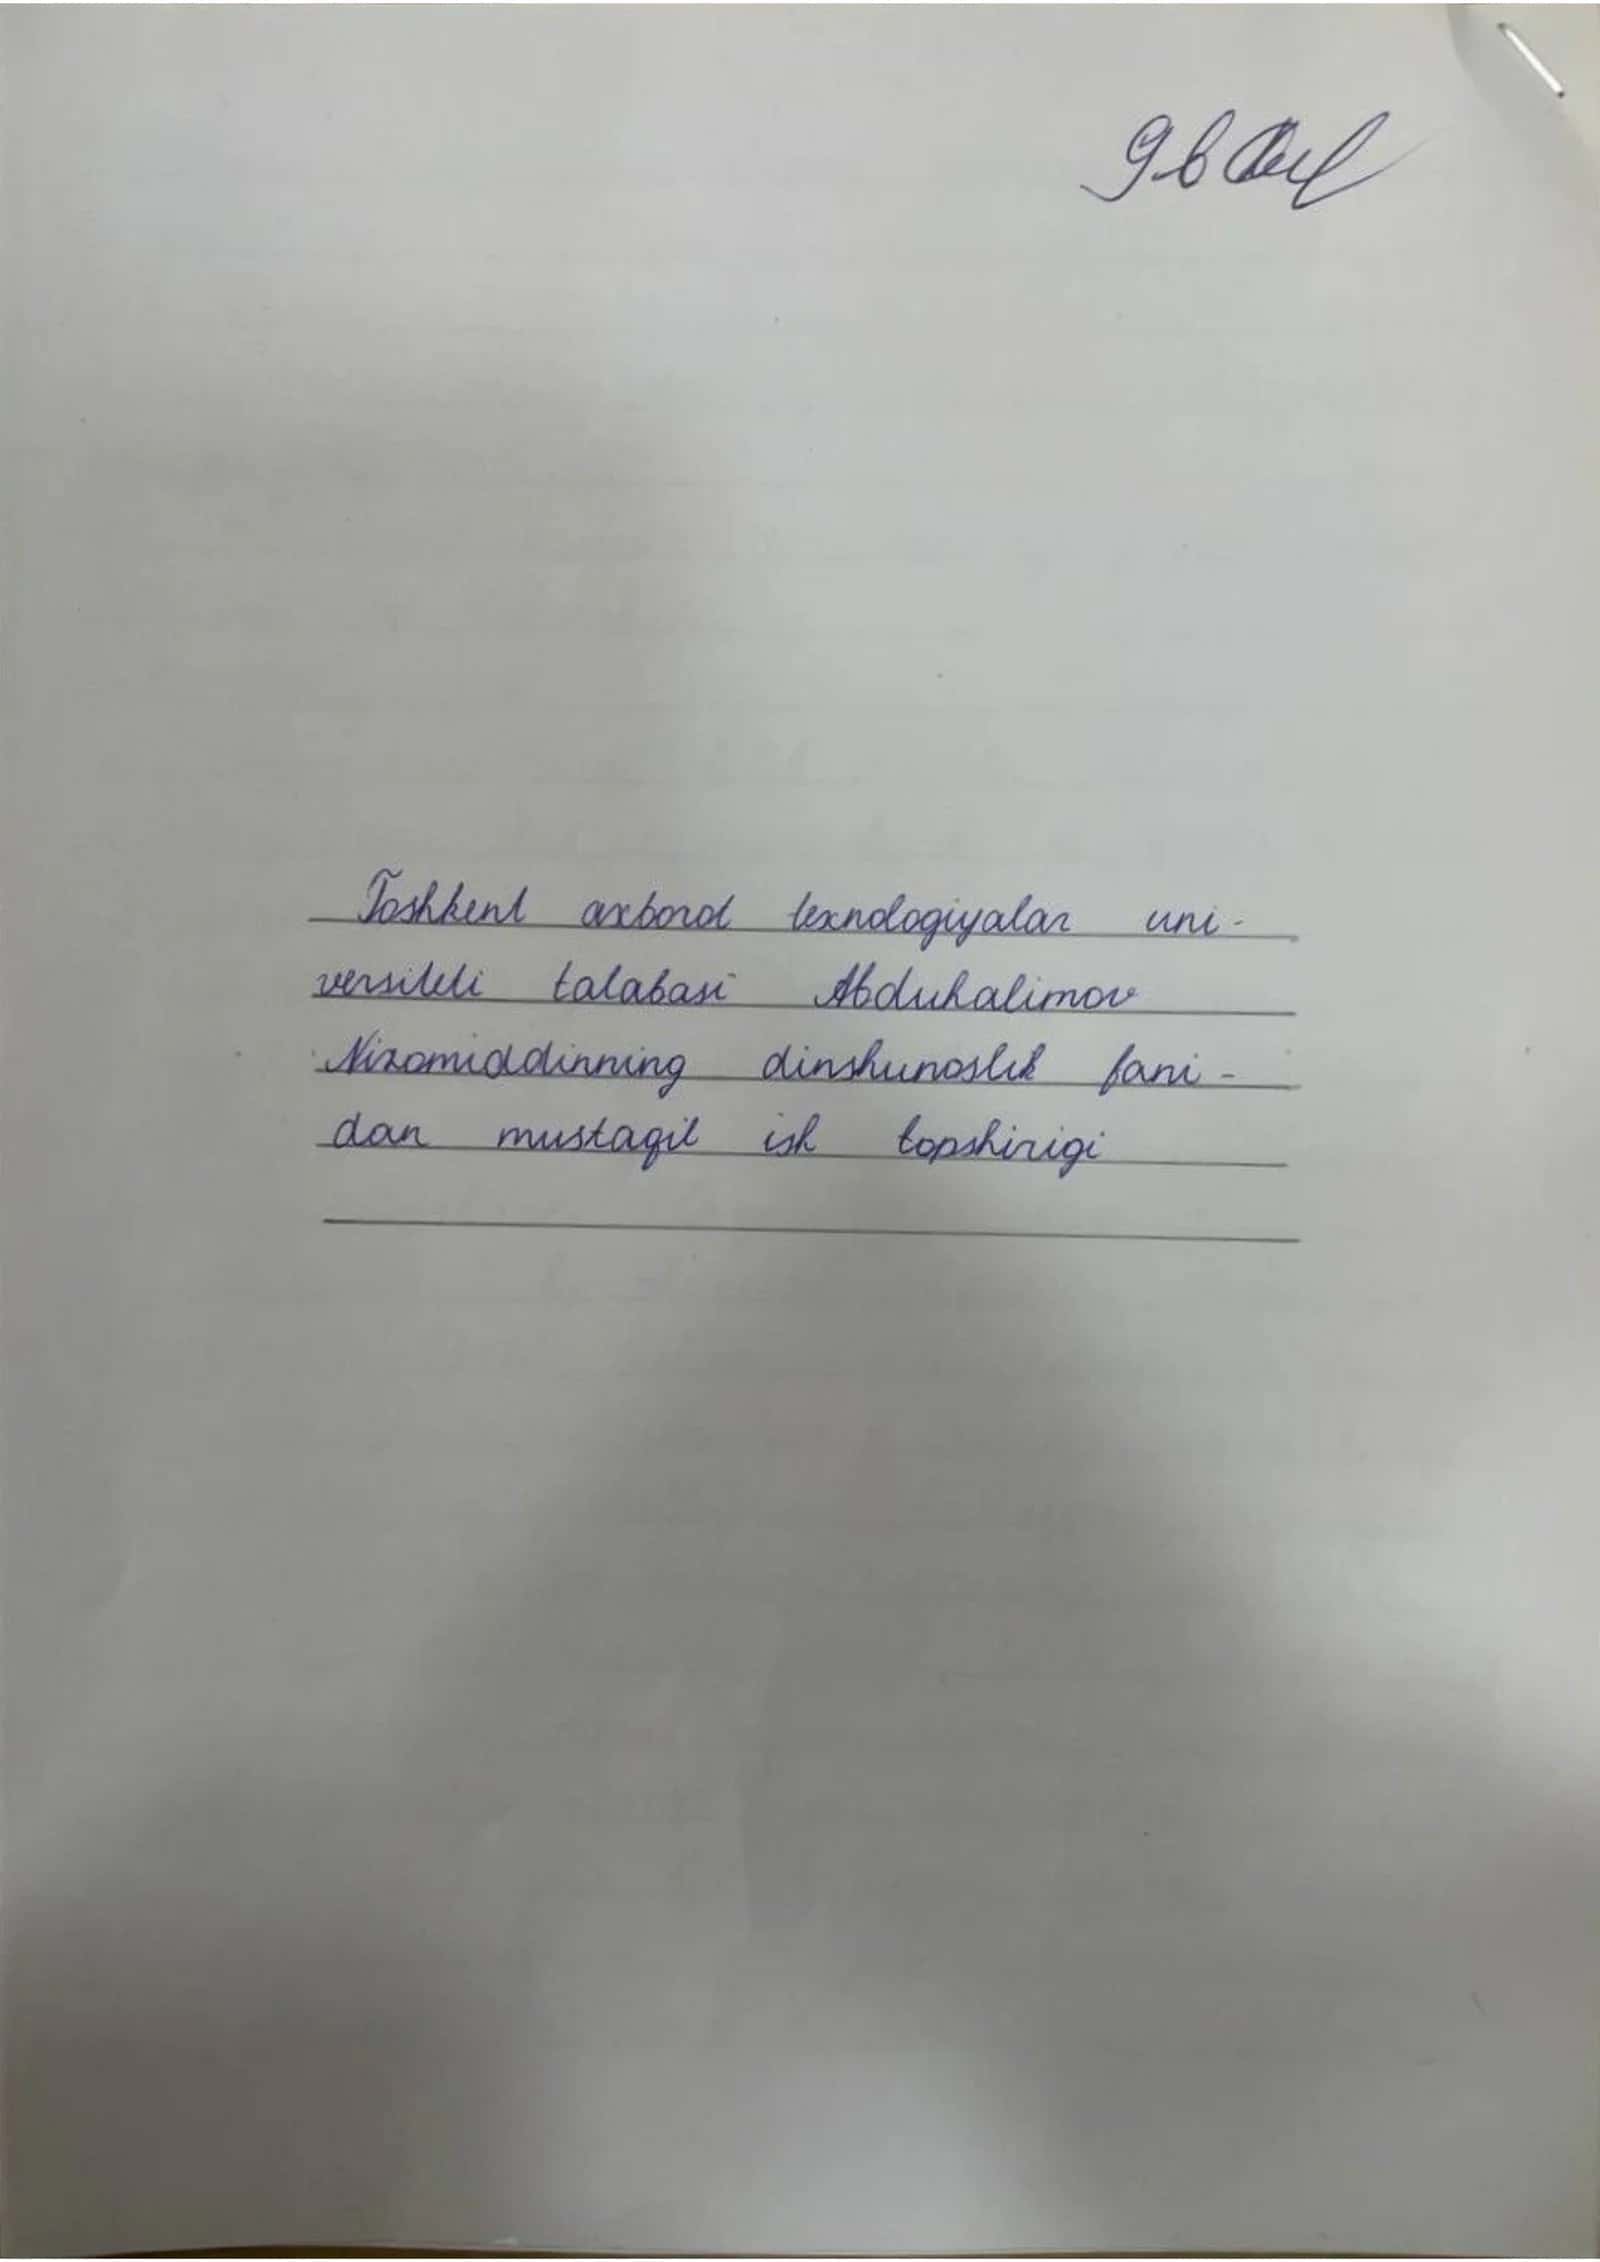 Toshkent axborot texnologiyalar uni-
versiteti talabasi Abduhalimov
Nizomiddinning dinshunoslik fani-
dan mustaqil ish topshirigi